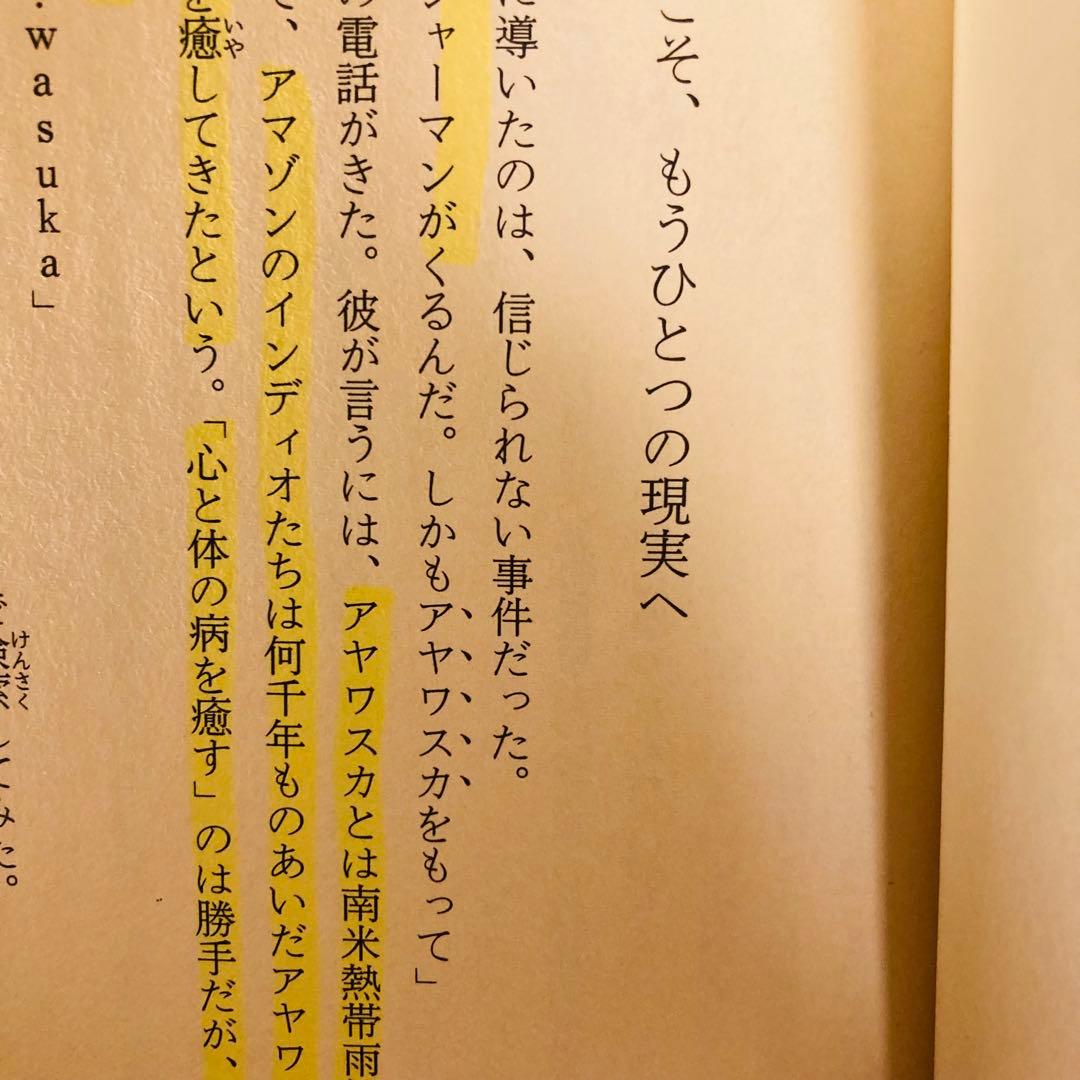 こそ、もうひとつの現実へ
に導いたのは、信じられない事件だった。
ャーマンがくるんだ。しかもアヤワスカをもって」
の電話がきた。彼が言うには、アヤワスカとは南米熱帯雨
、アマゾンのインディオたちは何千年ものあいだアヤワ
を癒してきたという。「心と体の病を癒す」のは勝手だが、
wasuka」
検索してみた。